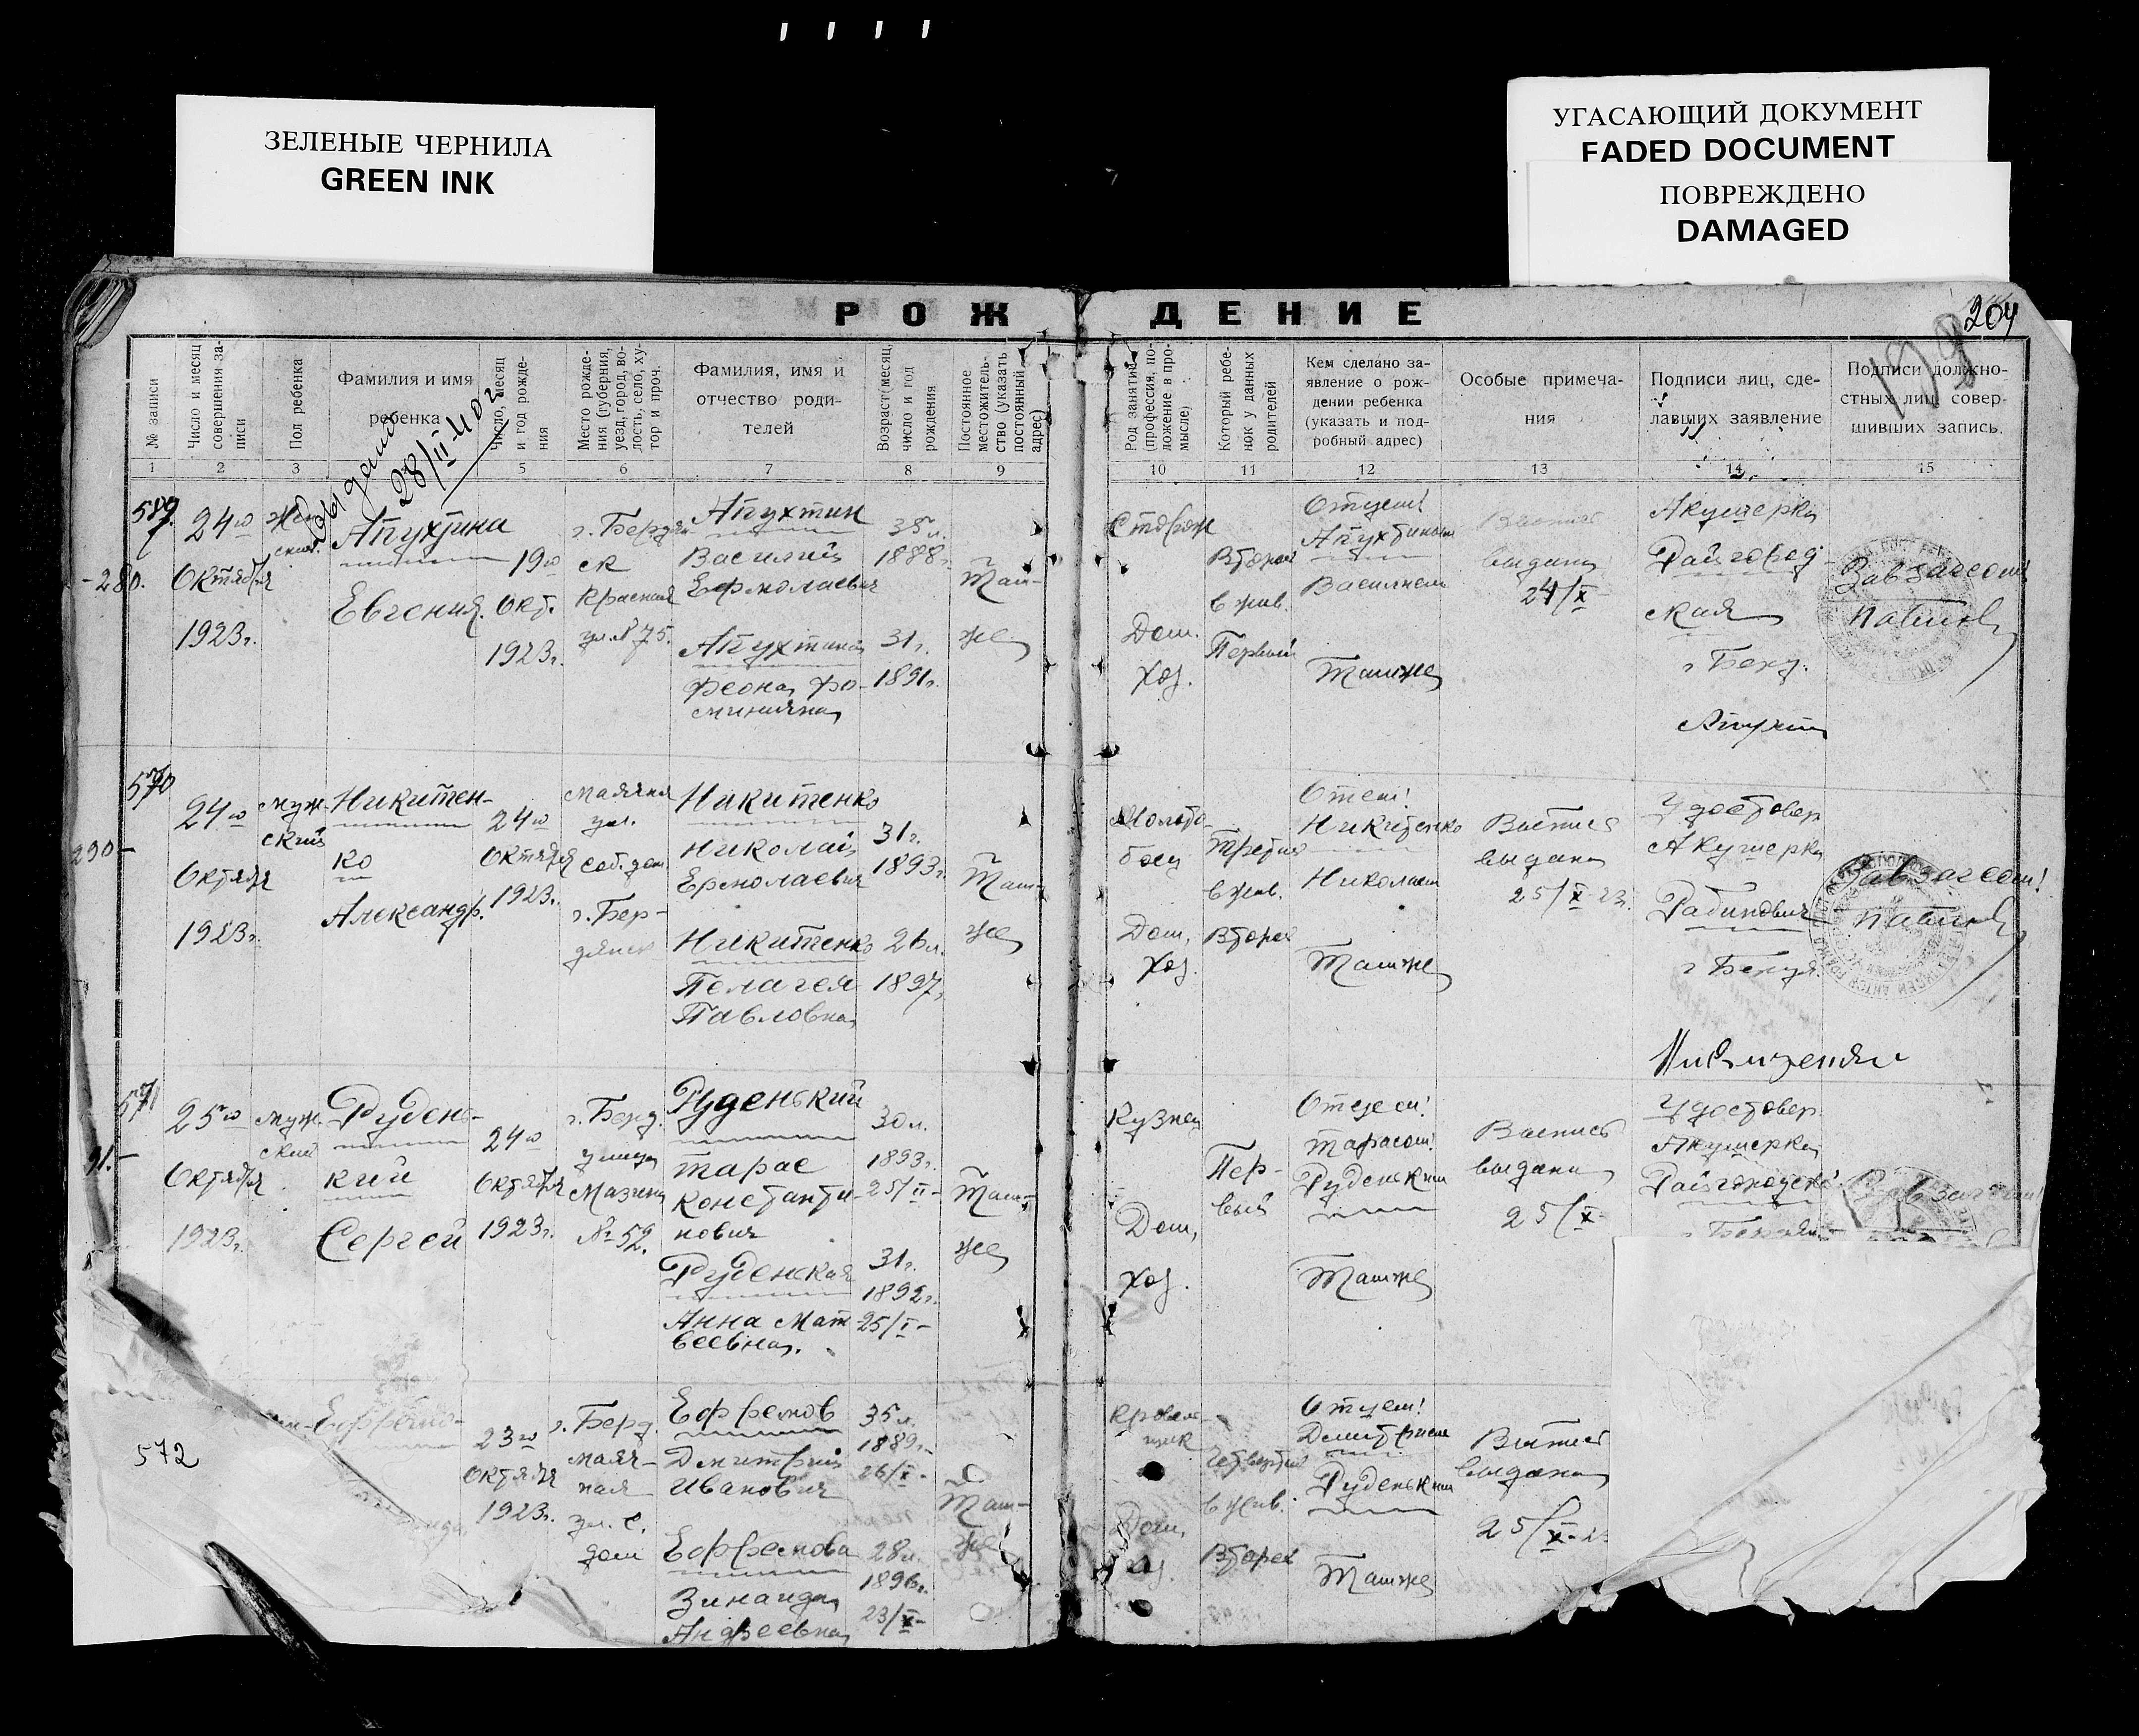 ЗЕЛЕНЫЕ ЧЕРНИЛА
GREEN INK
УГАСАЮЩИЙ ДОКУМЕНТ
FADED DOCUMENT
ПОВРЕЖДЕНО
DAMAGED
РОЖДЕНИЕ
204
№ записи
Число и месяц
совершения за-
писи
Пол ребенка
Фамилия и имя
ребенка
Число, месяц
и год рожде-
ния
Место рожде-
ния (губерния,
уезд, город, во-
лость, село, ху-
тор и проч.
Фамилия, имя и
отчество роди-
телей
Возраст месяц,
число и год
рождения
Постоянное
местожитель-
ство (указать
постоянный
адрес)
Род занятий
(профессия, по-
ложение в про-
мысле)
Который ребе-
нок у данных
родителей
Кем сделано за-
явление о рож-
дении ребенка
(указать и под-
робный адрес)
Особые примеча-
ния
Подписи лиц, сде-
лавших заявление
Подписи должно-
стных лиц, совер-
шивших запись.
1 2 3 5 6 7 8 9 10 11 12 13 14 15
28/II-40г
24го
Октября
1923г.
Апухтина
Евгения.
19го
Окт.
1923г.
г. Бердян
ск
Красная
ул. № 75.
Апухтин
Василий
Ермолаевич
Апухтина
35 л.
1888г.
31 г.
1891г.
Там-
же
Сторож
Дом.
Хоз.
Второй
в жив.
Первый
Отцем!
Апухтиным
Василием
Тамже
выдана
24/X
Акушерка
Райгород-
ская
Завзагсом!
570
24го
Октября
1923г.
муж-
ский
Никитен-
ко
Александр.
24го
Октября
1923г.
Маячная
ул.
соб. дом.
г. Бер-
дянск
Никитенко
Николай
Ермолаевич
Никитенко
Пелагея
Павловна
31 г.
1893г.
26 л.
1897г.
Там-
же
Третий
в жив.
Дом.
Хоз.
Второй
Отцем!
Никитенко
Николаем
Тамже
Выпись
выдана
25/X-23.
Удостовер.
Акушерка
Рабинович
Завзагсом!
571
25го
Октября
1923г.
муж-
ский
Рудень-
кий
Сергей
24го
Октября
1923г.
г. Берд.
улица
Мазина
№ 52.
Руденький
Тарас
Константи-
нович
Руденская
Анна Мат
веевна.
30 л.
1893г.
25/II-
31 г.
1892г.
25/I-
Там-
же
Кузнец
Дом,
Хоз.
Пер-
вый
Отцем!
Тарасом!
Руденьким
Тамже
Выпись
выдана
25/X-
Удостовер.
Акушерка
572
23го
Октября
1923г.
г. Берд.
Маяч-
ная
ул. с.
дом
Ефремов
Дмитрий
Иванович
Ефремова
Зинаида
Андреевна
35 л.
1889г.
26/X-
28 л.
1896г.
23/X-
Там-
же
Кровель-
щик
Дом,
Четвертый
в жив.
Второй
Отцем!
Дмитрием
Руденьким
Тамже
Выпись
выдана
25/X-23